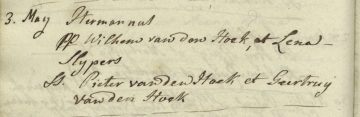 3. May Hermannus
pp Wilhem van den Hoek, et Lena
Slypers
SS. Pieter van den Hoek et Geertruy
van den Hoek